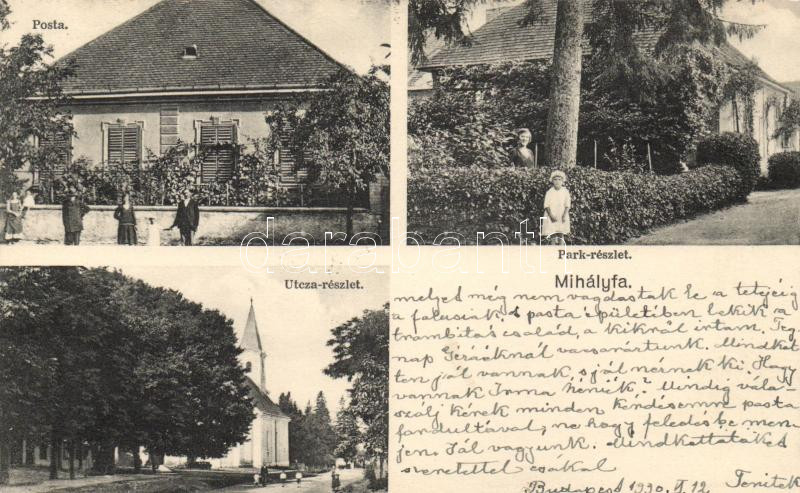 Posta.
Park-részlet.
Utcza-részlet.
Mihályfa.
melyet még nem vagdostak le a tetejéig
a falusiak. A posta épületében lakik a
család, a kikről irtam. Teg
nap vacsoráztunk. Mindket
ten jól vannak, Hogy
vannak Irma néniék? Mindig vála-
szolj kérek minden kérdésemre posta
fordultával, ne hogy feledésbe men-
jen. Jól vagyunk. Mindkettőtöket
szeretettel csókol
Budapest 1930. II. 12.
darabanth.com